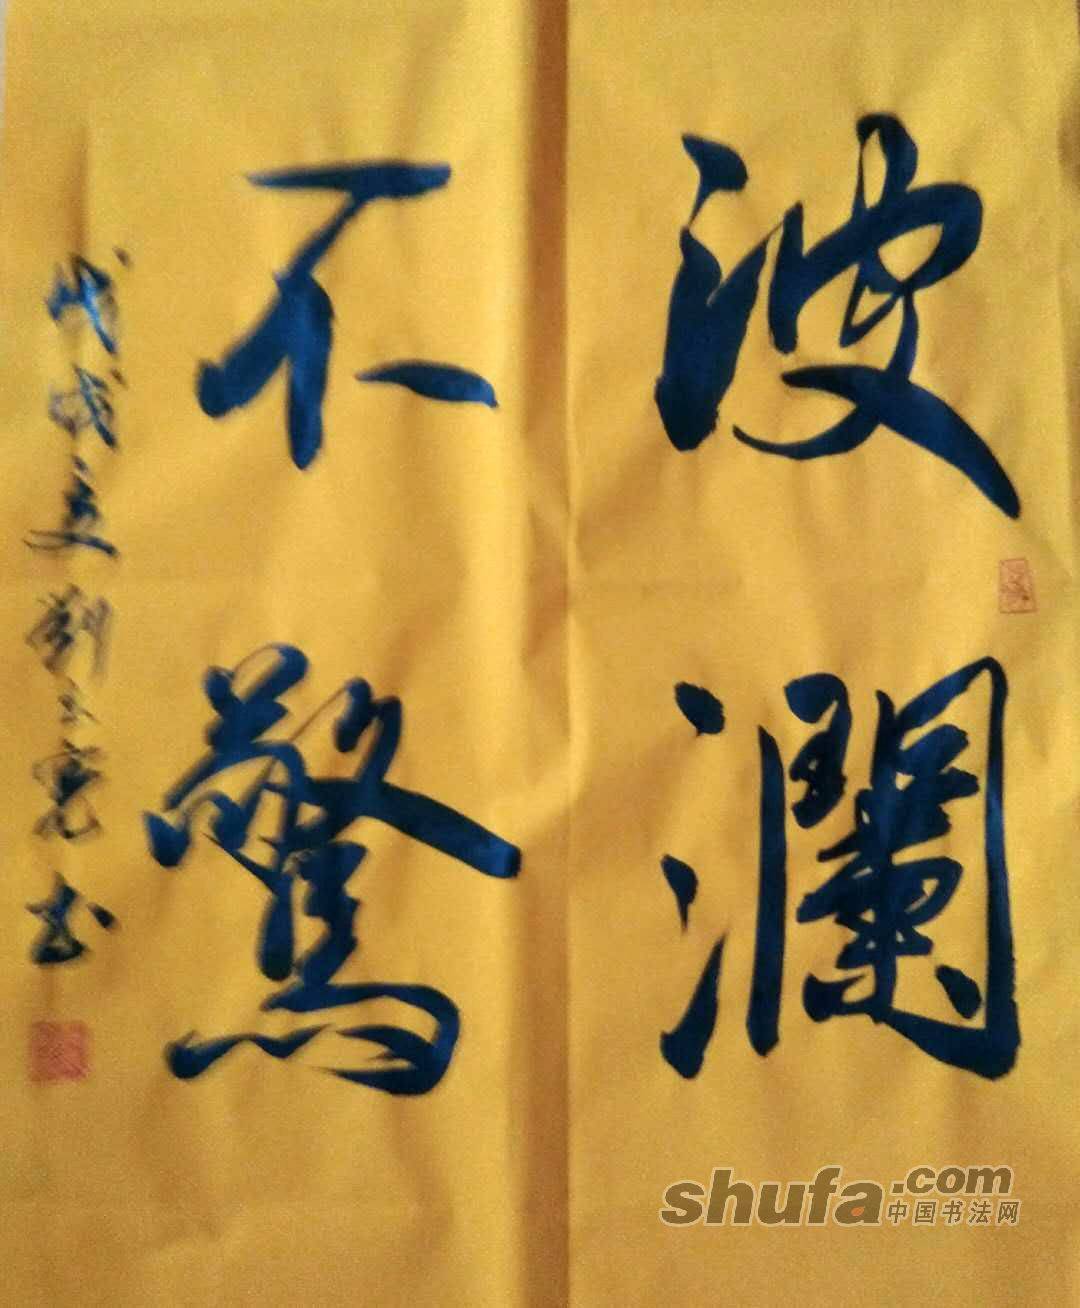 波瀾
不驚
戊戌立劉玉亮书
shufa.com
中国书法网